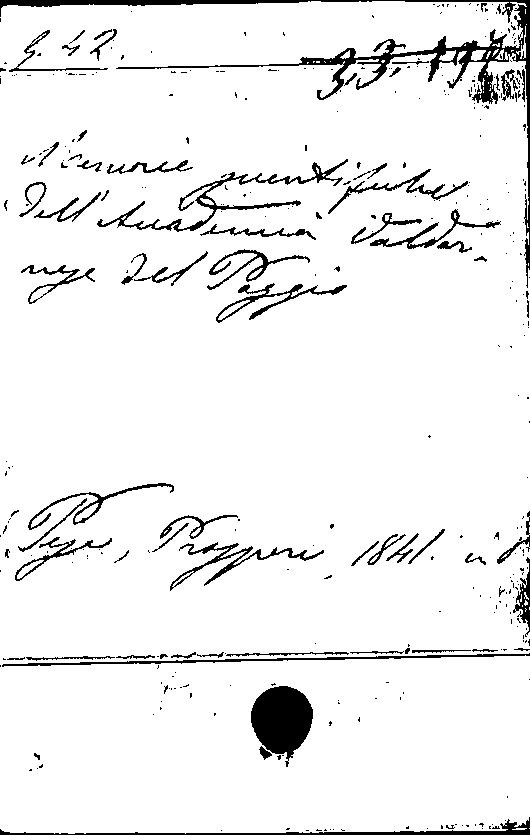 G. 42.
33. 197
Memorie scientifiche
dell'Accademia Valdar-
nese del Poggio
Pisa, Prosperi, 1841. in 8